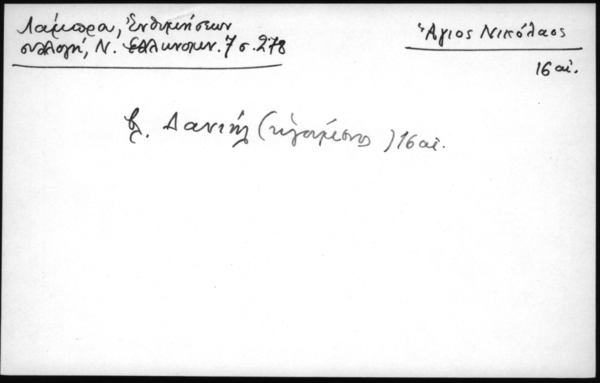 Λάμπρα, Ἐνθυμήσεων
συλλογή, Ν. Ἑλληνομν. 7 σ. 278
Ἅγιος Νικόλαος
16 αἰ.
Δανιήλ (ἡγούμενος) 16 αἰ.